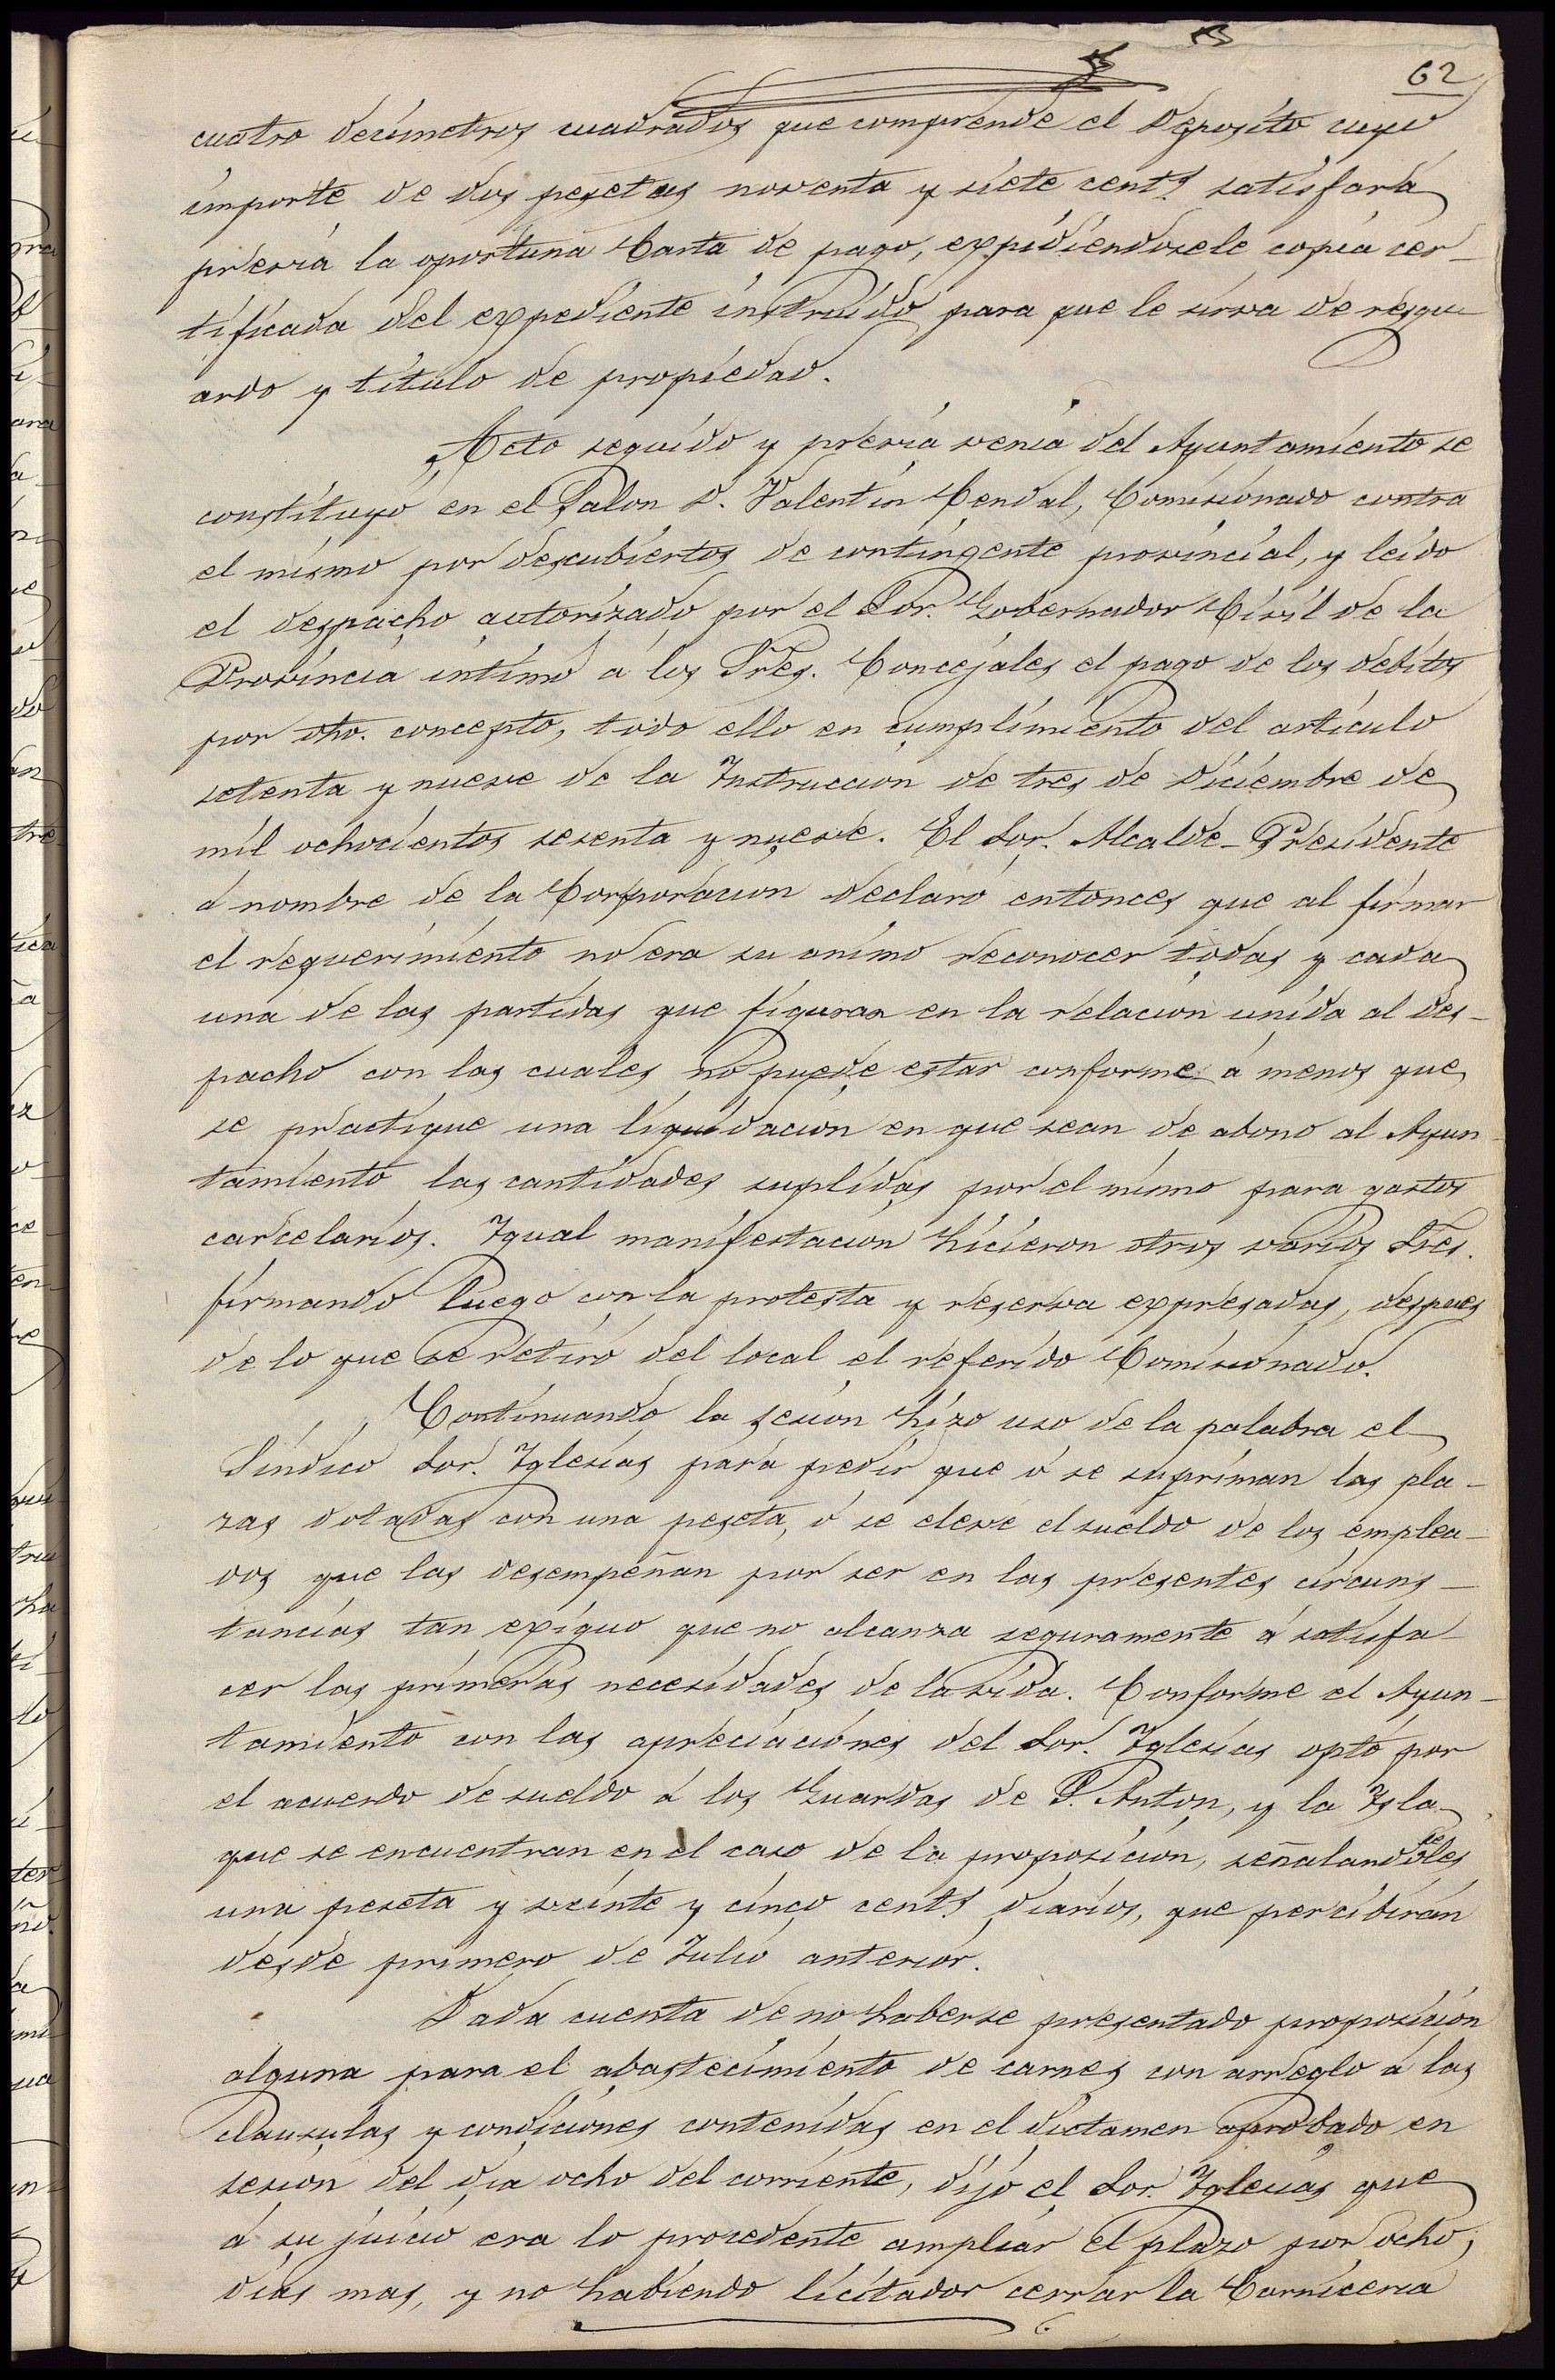 62
cuatro decímetros cuadrados que comprende el Deposito cuyo
importe de dos pesetas noventa y siete cents. satisfará
previa la oportuna Carta de pago, expidiendosele copia cer-
tificada del expediente instruido para que le sirva de resgu-
ardo y título de propiedad.
Acto seguido y previa venia del Ayuntamiento se
constituyó en el Salon D. Valentin Cendal, Comisionado contra
el mismo por descubiertos de contingente provincial, y leido
el despacho autorizado por el Sor. Gobernador Civil de la
Provincia intimó á los Sres. Concejales el pago de los debitos
por dho. concepto, todo ello en cumplimiento del artículo
setenta y nueve de la Instruccion de tres de Diciembre de
mil ochocientos sesenta y nueve. El Sor. Alcalde-Presidente
á nombre de la Corporacion declaró entonces que al firmar
el requerimiento no era su animo reconocer todas y cada
una de las partidas que figuran en la relacion unida al des-
pacho con las cuales no puede estar conforme á menos que
se practique una liquidacion en que sean de abono al Ayun
tamiento las cantidades suplidas por el mismo para gastos
carcelarios. Igual manifestacion hicieron otros varios Sres.
firmando luego con la protesta y reserva expresadas, despues
de lo que se retiró del local el referido Comisionado.
Continuando la sesion hizo uso de la palabra el
Síndico Sor. Iglesias para pedir que ó se supriman las pla-
zas dotadas con una peseta, ó se eleve el sueldo de los emplea-
dos que las desempeñan por ser en las presentes circuns-
tancias tan exiguo que no alcanza seguramente á satisfa-
cer las primeras necesidades de la vida. Conforme el Ayun-
tamiento con las apreciaciones del Sor. Iglesias optó por
el acuerdo de sueldo á los Guardas de S. Anton, y la Isla
que se encuentran en el caso de la proposicion, señalandoseles
una peseta y veinte y cinco cents. diarios, que percibirán
desde primero de Julio anterior.
Dada cuenta de no haberse presentado proposicion
alguna para el abastecimiento de carnes con arreglo á las
clausulas y condiciones contenidas en el dictamen aprobado en
sesion del dia ocho del corriente, dijo el Sor. Iglesias que
á su juicio era lo procedente ampliar el plazo por ocho
dias mas, y no habiendo licitador cerrar la Carnicería